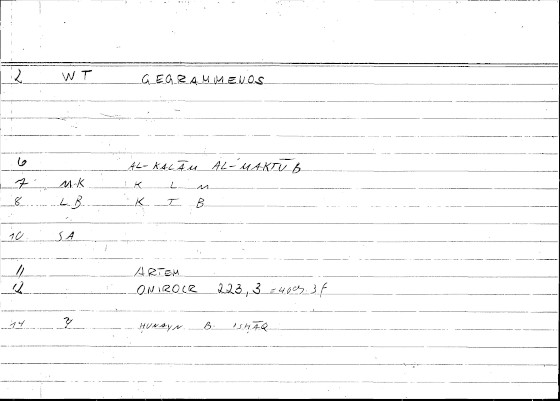 2 WT GEGRAMMENOS
6 AL-KALĀM AL-MAKTŪB
7 M-K K L M
8 LB K T B
10 SA
11 ARTEM
12 ONIROCR 223,3 = 409, 3f
14 HUNAYN B. ISHĀQ